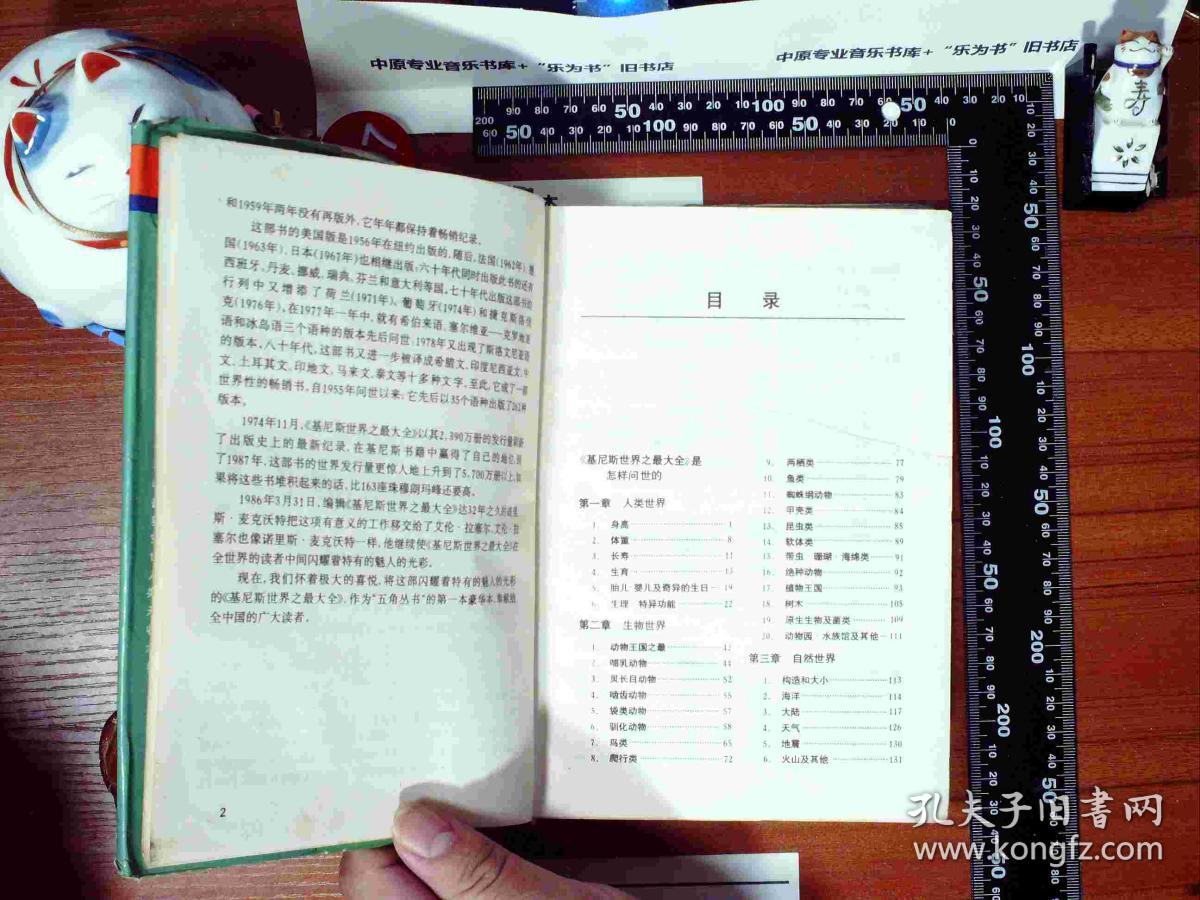 中原专业音乐书库+“乐为书”旧书店
中原专业音乐书库+“乐为书”旧书店
寿
本
和1959年两年没有再版外,它年年都保持着畅销纪录。
这部书的美国版是1956年在纽约出版的,随后,法国(1962年)、德
国(1963年)、日本(1967年)也相继出版;六十年代同时出版此书的还有
西班牙、丹麦、挪威、瑞典、芬兰和意大利等国,七十年代出版这部书的
行列中又增添了荷兰(1971年)、葡萄牙(1974年)和捷克斯洛伐
克(1976年),在1977年一年中,就有希伯来语、塞尔维亚——克罗地亚
语和冰岛语三个语种的版本先后问世;1978年又出现了斯洛文尼亚语
的版本,八十年代,这部书又进一步被译成希腊文、印度尼西亚文、
文、土耳其文、印地文、马来文、泰文等十多种文字,至此,它成了一部
世界性的畅销书。自1955年问世以来,它先后以35个语种出版了262种
版本。
1974年11月,《基尼斯世界之最大全》以其2,390万册的发行量刷新
了出版史上的最新纪录,在基尼斯书籍中赢得了自己的地位,到
了1987年,这部书的世界发行量更惊人地上升到了5,700万册以上,如
果将这些书堆积起来的话,比163座珠穆朗玛峰还要高。
1986年3月31日,编辑《基尼斯世界之最大全》达32年之久的诺里
斯·麦克沃特把这项有意义的工作移交给了艾伦·拉塞尔,艾伦·拉
塞尔也像诺里斯·麦克沃特一样,他继续使《基尼斯世界之最大全》在
全世界的读者中间闪耀着特有的魅人的光彩。
现在,我们怀着极大的喜悦,将这部闪耀着特有的魅人的光彩
的《基尼斯世界之最大全》,作为“五角丛书”的第一本豪华本,奉献给
全中国的广大读者。
2
目 录
《基尼斯世界之最大全》是
怎样问世的
第一章 人类世界
1. 身高 1
2. 体重 8
3. 长寿 11
4. 生育 13
5. 胎儿 婴儿及奇异的生日 19
6. 生理 特异功能 22
第二章 生物世界
1. 动物王国之最 42
2. 哺乳动物 44
3. 贝长目动物 52
4. 啮齿动物 55
5. 袋类动物 57
6. 驯化动物 58
7. 鸟类 65
8. 爬行类 72
9. 两栖类 77
10. 鱼类 79
11. 蜘蛛纲动物 83
12. 甲壳类 84
13. 昆虫类 85
14. 软体类 89
15. 带虫 珊瑚 海绵类 91
16. 绝种动物 92
17. 植物王国 93
18. 树木 105
19. 原生生物及菌类 109
20. 动物园 水族馆及其他 111
第三章 自然世界
1. 构造和大小 113
2. 海洋 114
3. 大陆 117
4. 天气 126
5. 地震 130
6. 火山及其他 131
孔夫子旧书网
www.kongfz.com